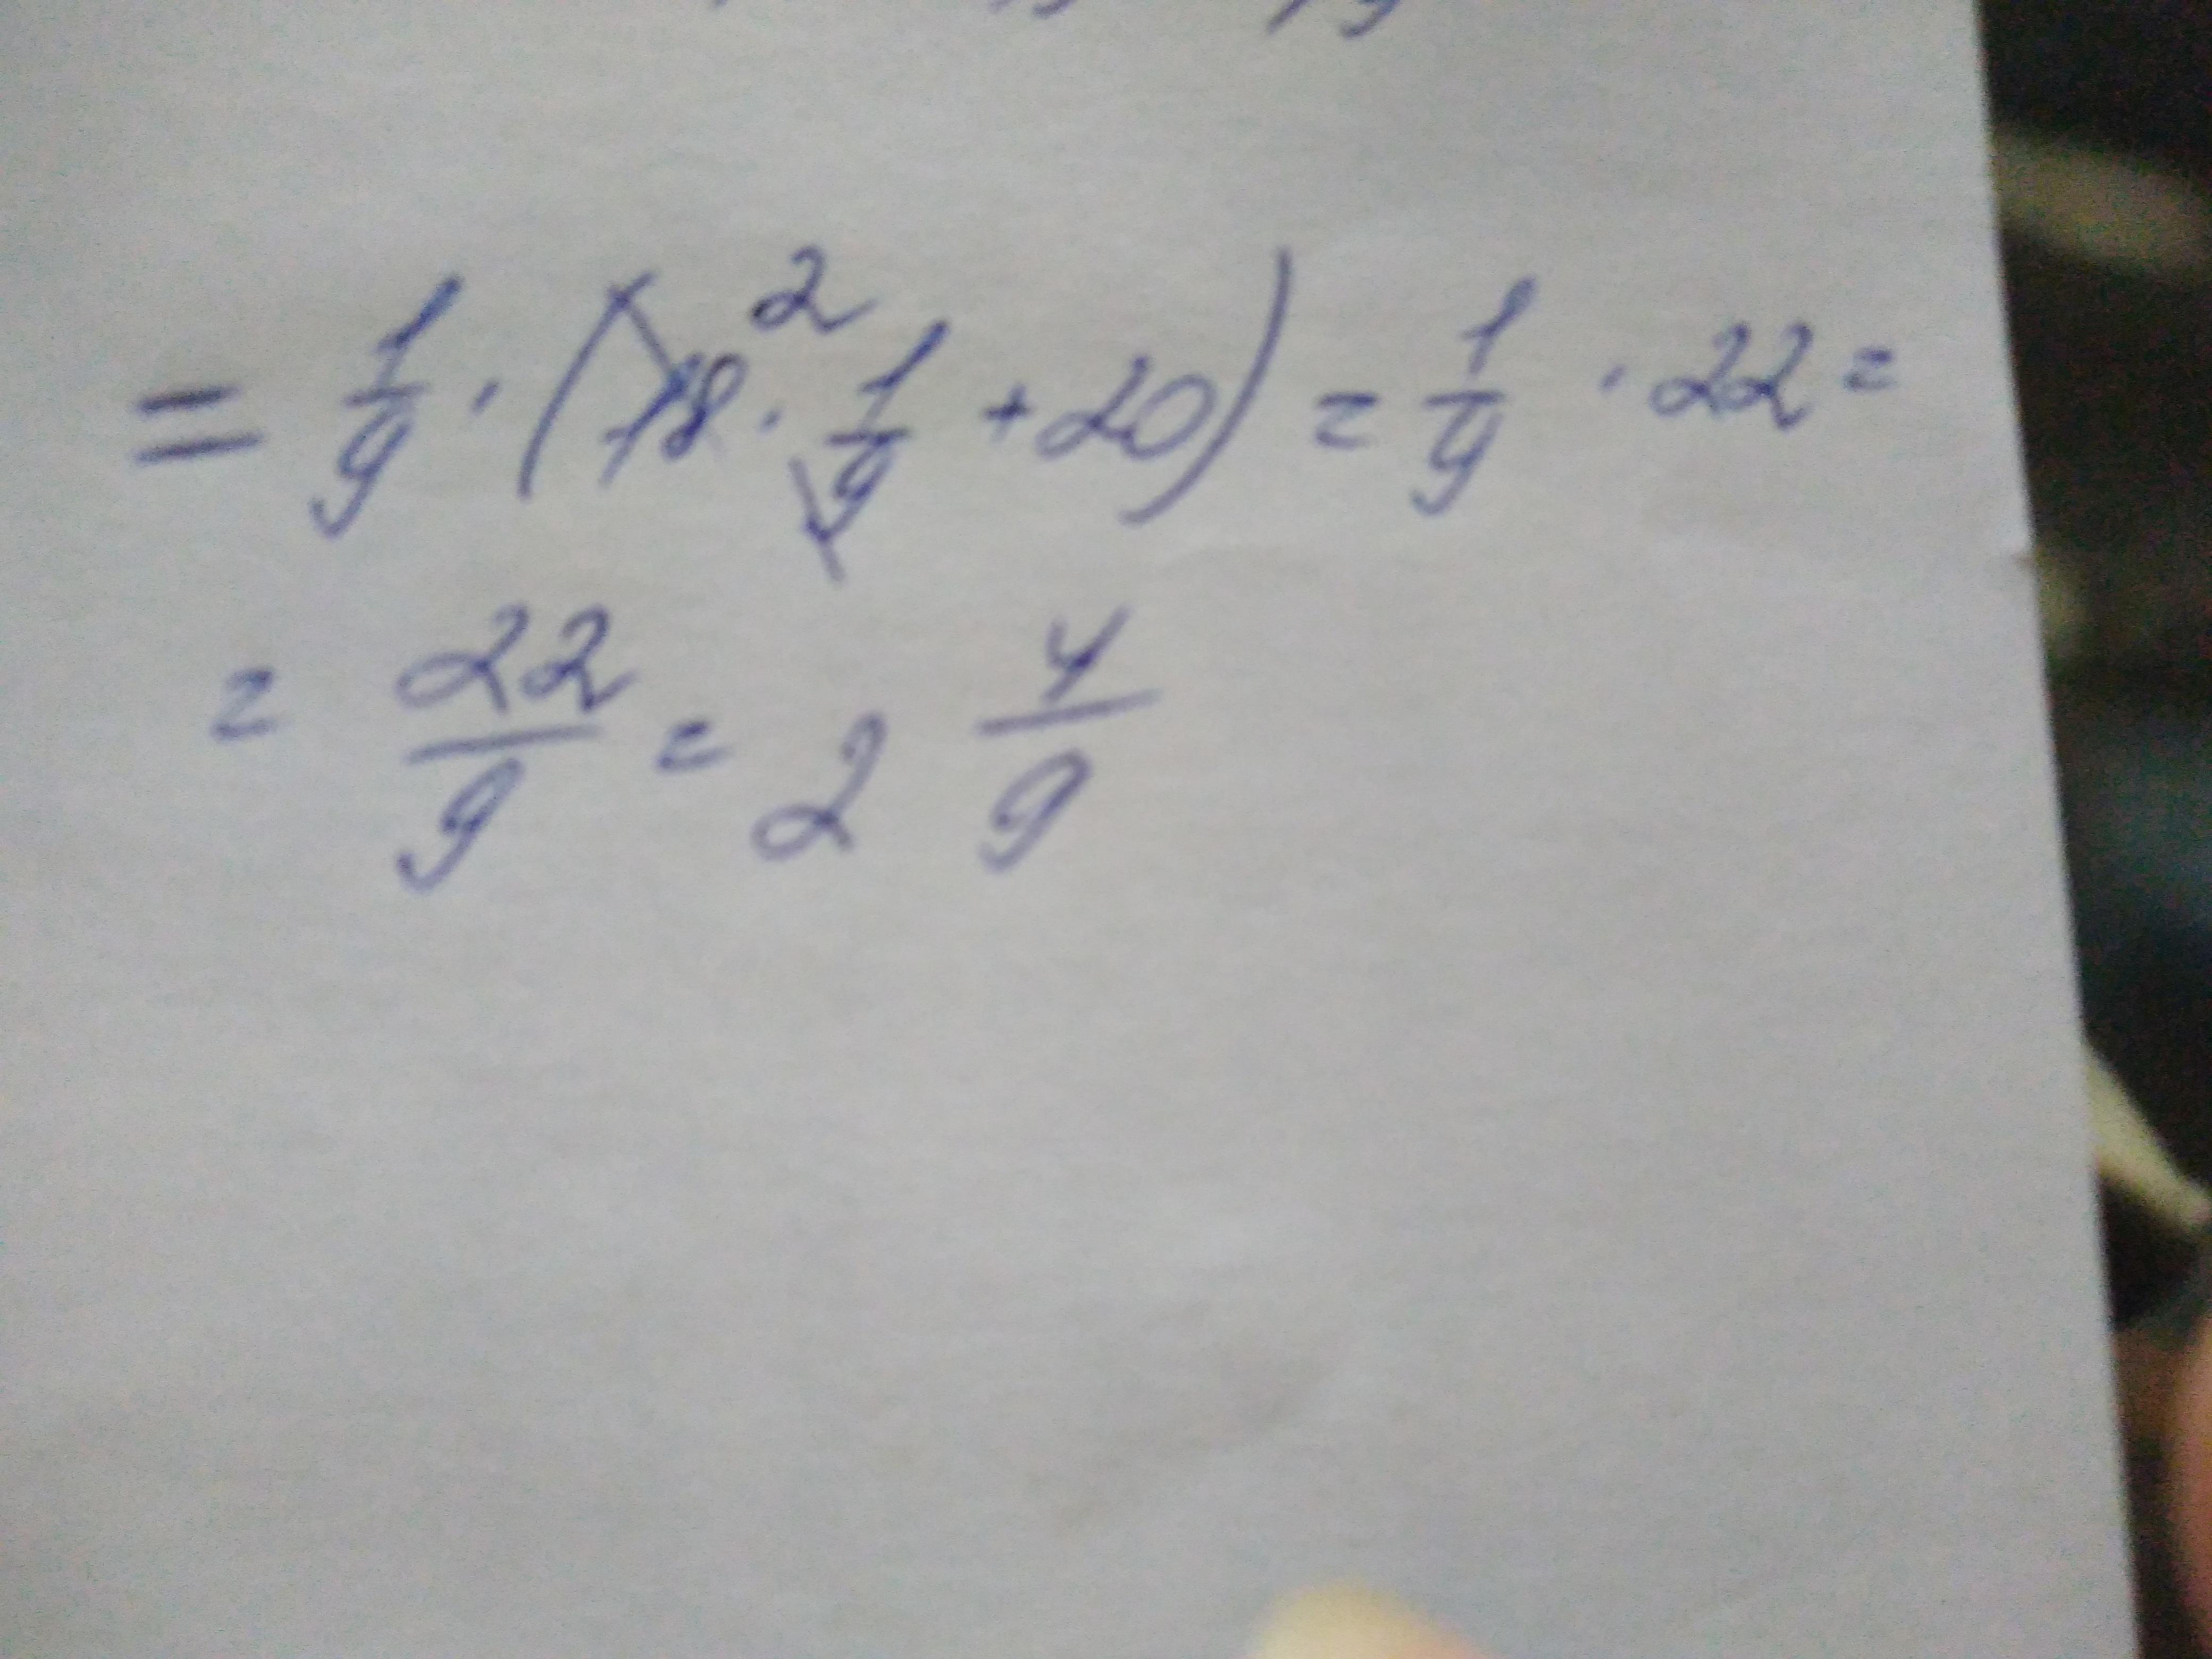 = 1/9 · (18 2 · 1/9 + 20) = 1/9 · 22 =
= 22/9 = 2 4/9